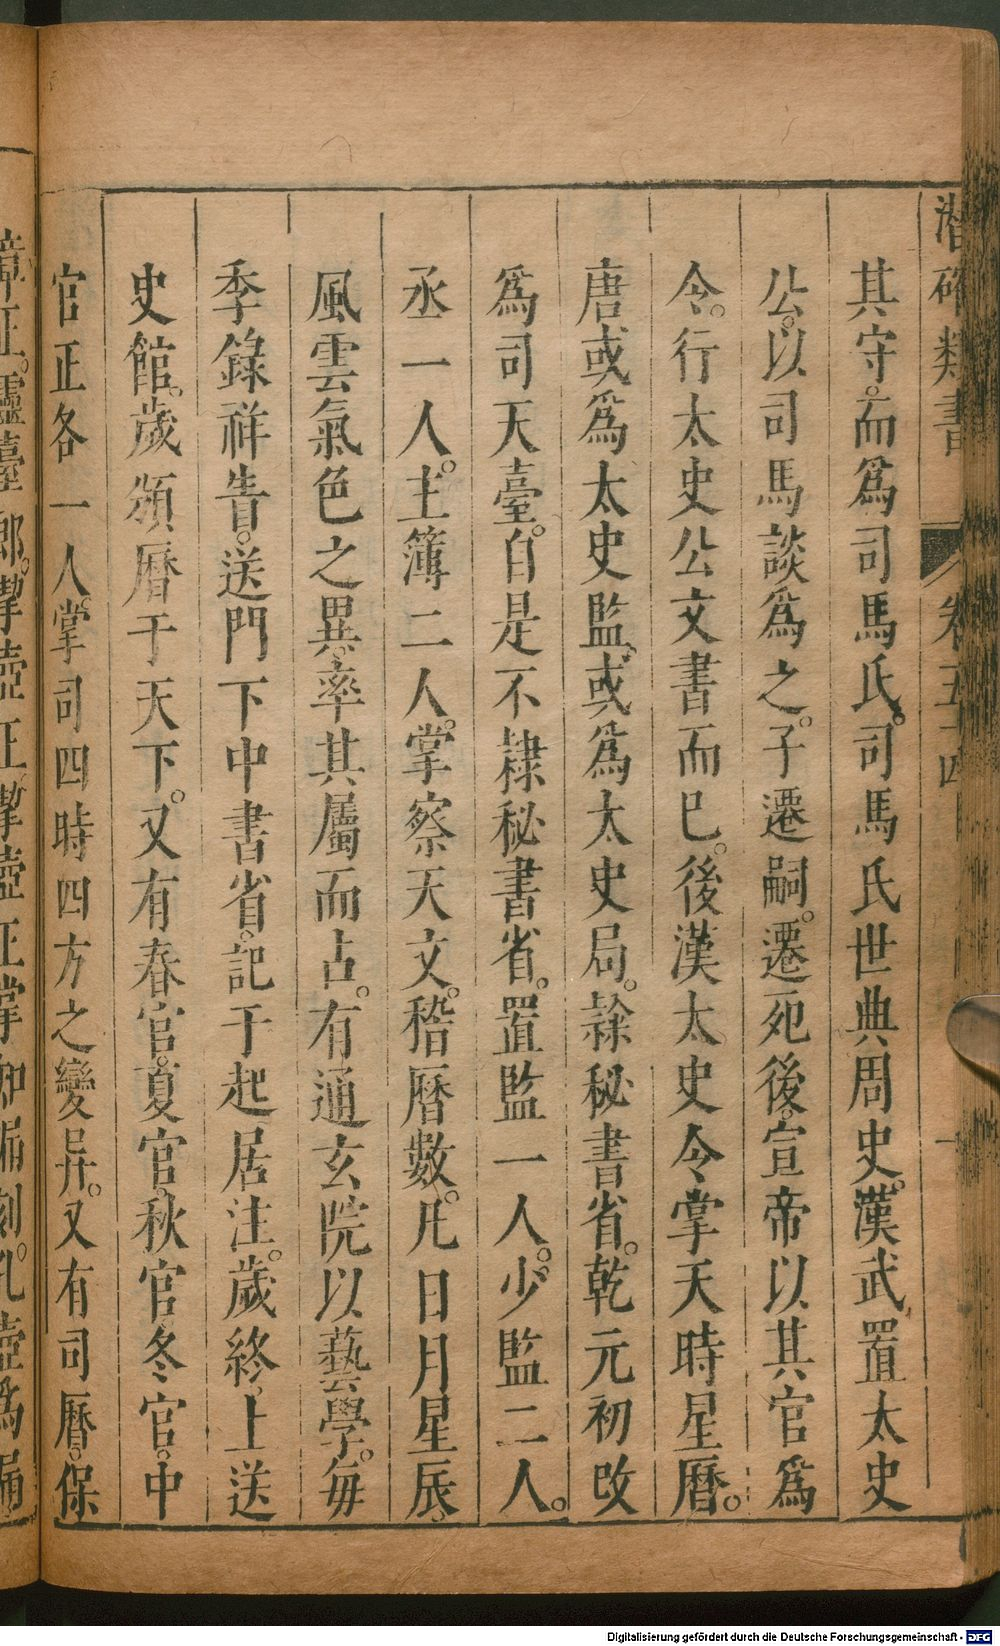 潛確類書 卷五十四 一
其守。而爲司馬氏。司馬氏世典周史。漢武置太史
公。以司馬談爲之。子遷嗣。遷死後。宣帝以其官爲
令。行太史公文書而已。後漢太史令掌天時星曆。
唐或爲太史監。或爲太史局。隸秘書省。乾元初改
爲司天臺。自是不隸秘書省。置監一人。少監二人。
丞一人。主簿二人。掌察天文。稽曆數。凡日月星辰、
風雲氣色之異。率其屬而占。有通玄院以藝學。每
季錄祥眚。送門下中書省。記于起居注。歲終。上送
史館。歲頒曆于天下。又有春官。夏官。秋官冬官。中
官正各一人。掌司四時四方之變异。又有司曆。保
章正。靈臺郎。挈壺正。挈壺正掌知漏刻。孔壺爲漏
Digitalisierung gefördert durch die Deutsche Forschungsgemeinschaft - DFG